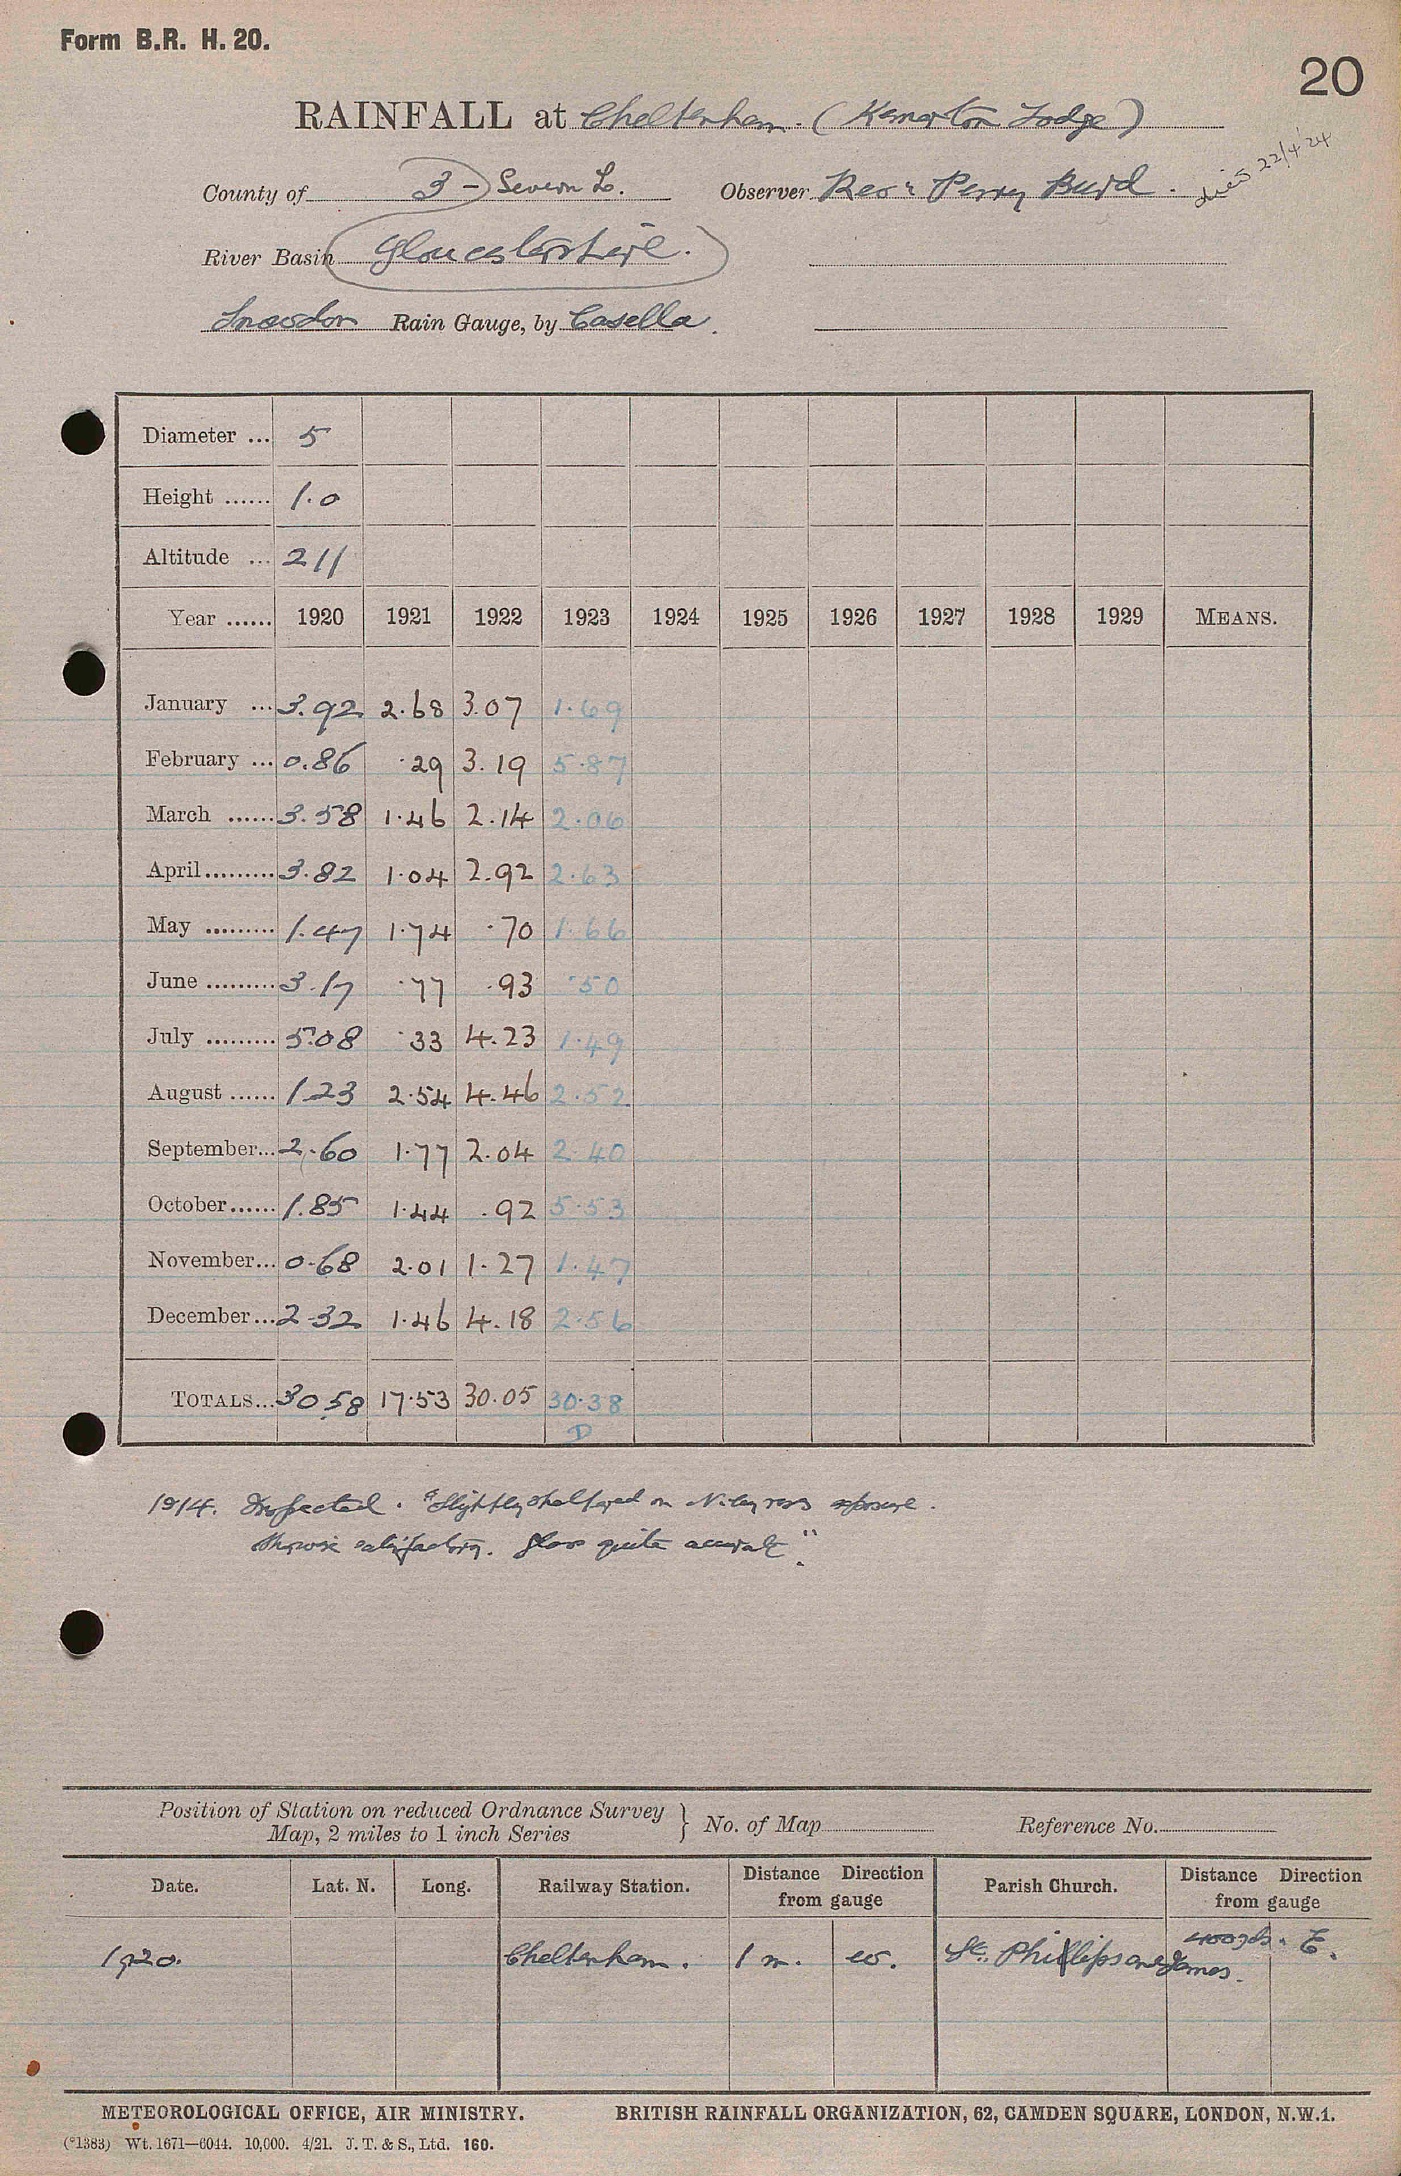 Form B.R. H. 20.
20
RAINFALL at Cheltenham. (Kemerton Lodge)
died 22/4/24
County of 3 - Severn L. Observer Revd. Percy Burd.
River Basin Gloucestershire.
Snowdon Rain Gauge, by Casella.
Diameter ... 5
Height ...... 1.0
Altitude ... 211
Year ...... 1920 1921 1922 1923 1924 1925 1926 1927 1928 1929 MEANS.
January ... 3.92 2.68 3.07 1.69
February ... 0.86 .29 3.19 5.87
March ...... 3.58 1.46 2.14 2.06
April ......... 3.82 1.04 2.92 2.63
May ......... 1.47 1.74 .70 1.66
June ......... 3.17 .77 .93 .50
July ......... 5.08 .33 4.23 1.49
August ...... 1.23 2.54 4.46 2.52
September... 2.60 1.77 2.04 2.40
October ...... 1.85 1.44 .92 5.53
November... 0.68 2.01 1.27 1.47
December... 2.32 1.46 4.18 2.56
TOTALS... 30.58 17.53 30.05 30.38
D
1914. Inspected. "Slightly sheltered on N. by exposure.
otherwise satisfactory. Glass quite accurate".
Position of Station on reduced Ordnance Survey
Map, 2 miles to 1 inch Series } No. of Map Reference No.
Date. Lat. N. Long. Railway Station. Distance Direction from gauge Parish Church. Distance Direction from gauge
1920. Cheltenham. 1 m. W. St. Phillips and James. 400 yds. E.
METEOROLOGICAL OFFICE, AIR MINISTRY. BRITISH RAINFALL ORGANIZATION, 62, CAMDEN SQUARE, LONDON, N.W.1.
(*1383) Wt. 1671—6044. 10,000. 4/21. J. T. & S., Ltd. 160.